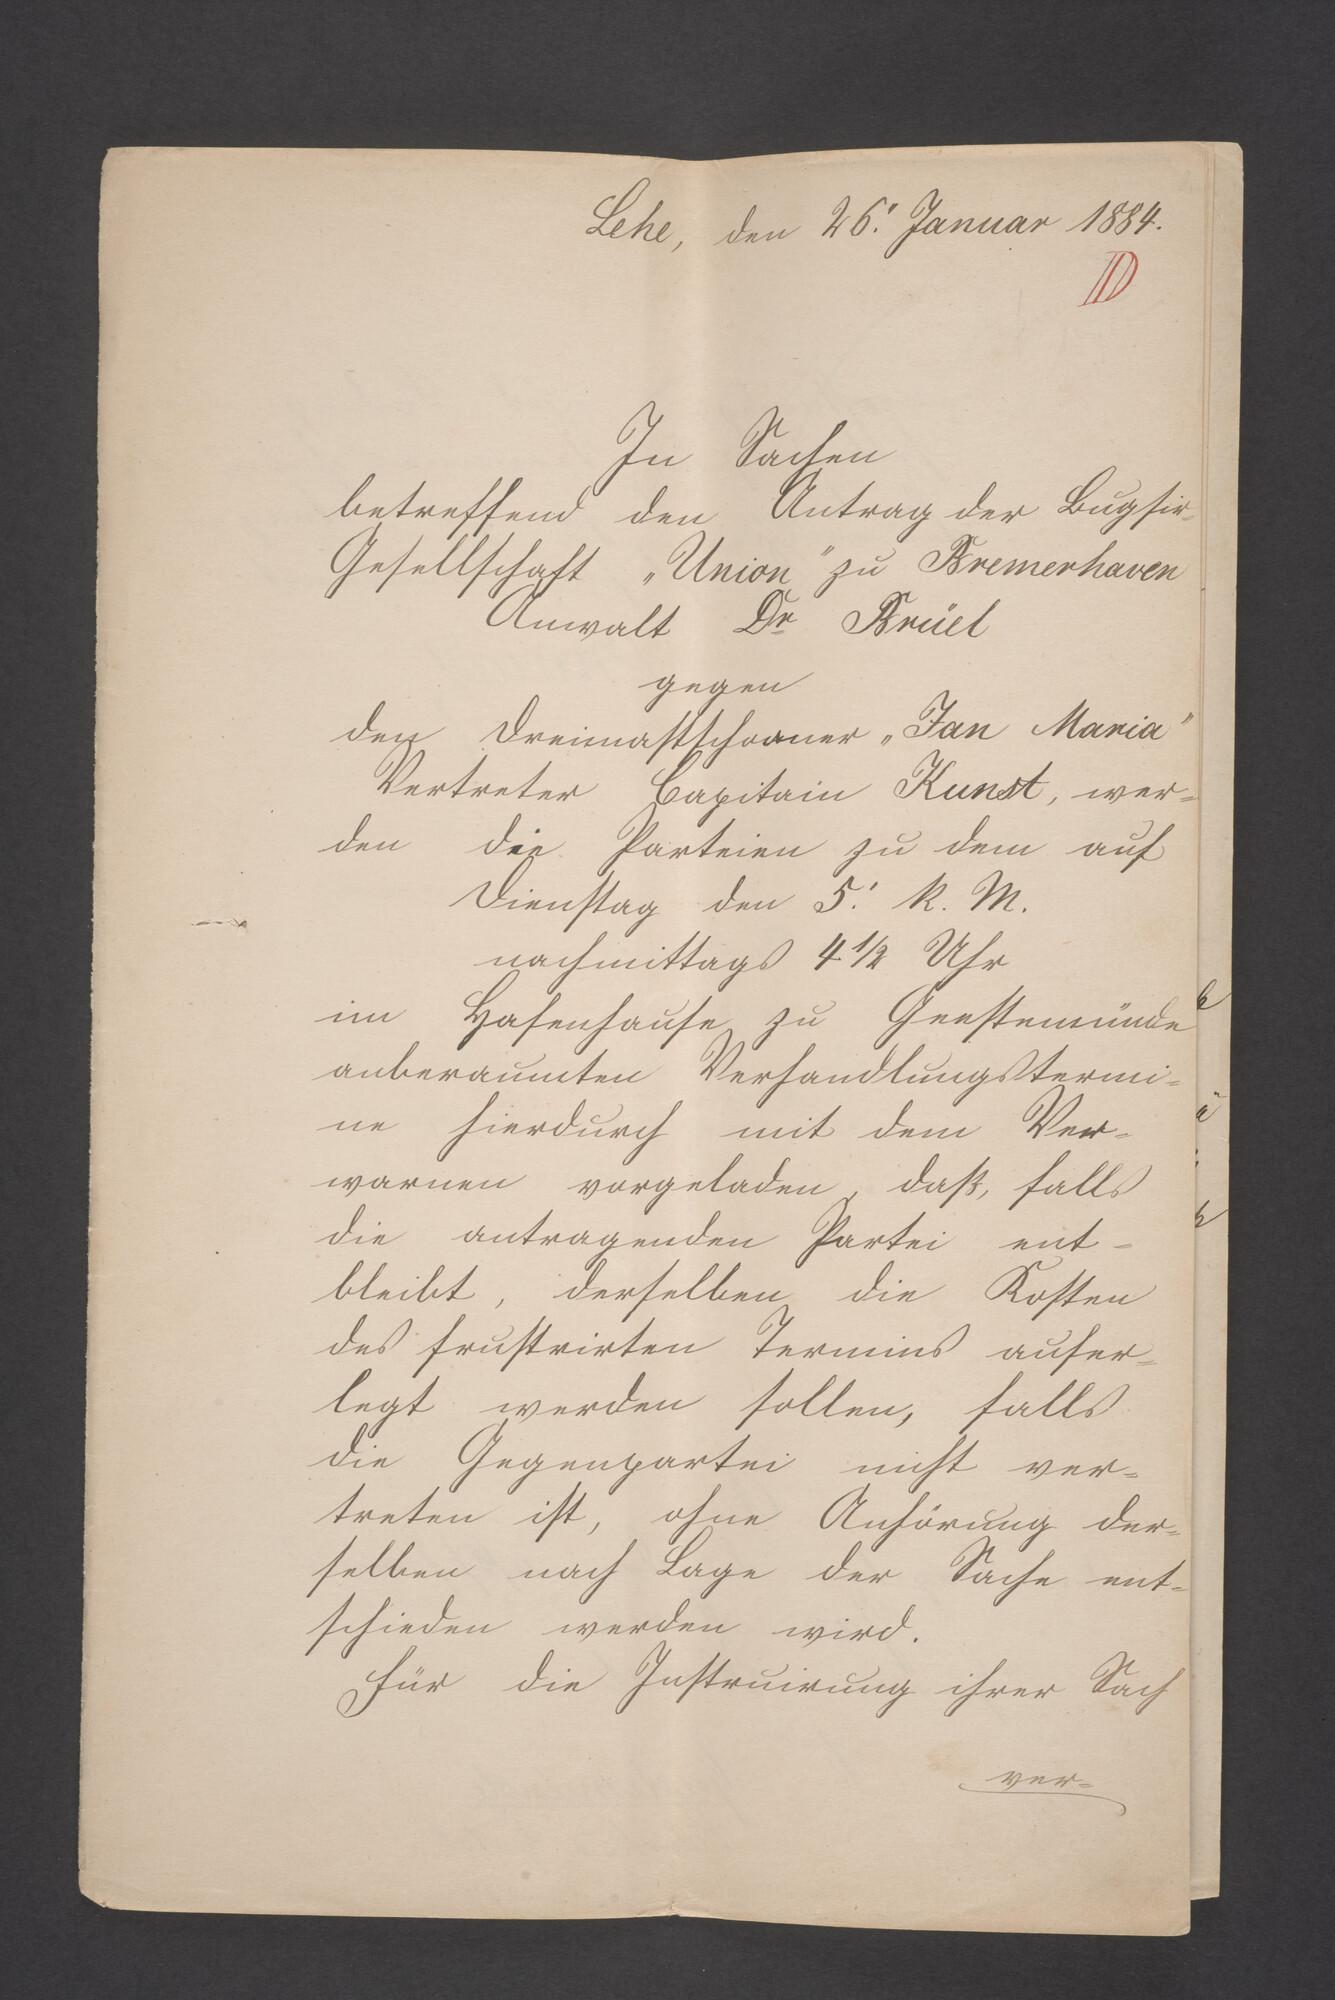 Lehe, den 26." Januar 1884.
III
In Sachen
betreffend den Antrag der Bugsir-
Gesellschaft „Union" zu Bremerhaven
Anwalt Dr Brüel
gegen
den Dreimastschooner „Jan Maria"
Vertreter Capitain Kunst, wer=
den die Parteien zu dem auf
Dienstag den 5.' k. M.
nachmittags 4 1/2 Uhr
im Hafenhause zu Geestemünde
anberaumten Verhandlungstermi=
ne hierdurch mit dem Ver=
warnen vorgeladen, daß, falls
die antragenden Partei ent=
bleibt, derselben die Kosten
des frustrirten Termins aufer=
legt werden sollen, falls
die Gegenpartei nicht ver=
treten ist, ohne Anhörung der=
selben nach Lage der Sache ent=
schieden werden wird.
Für die Instruirung ihrer Sach
ver=